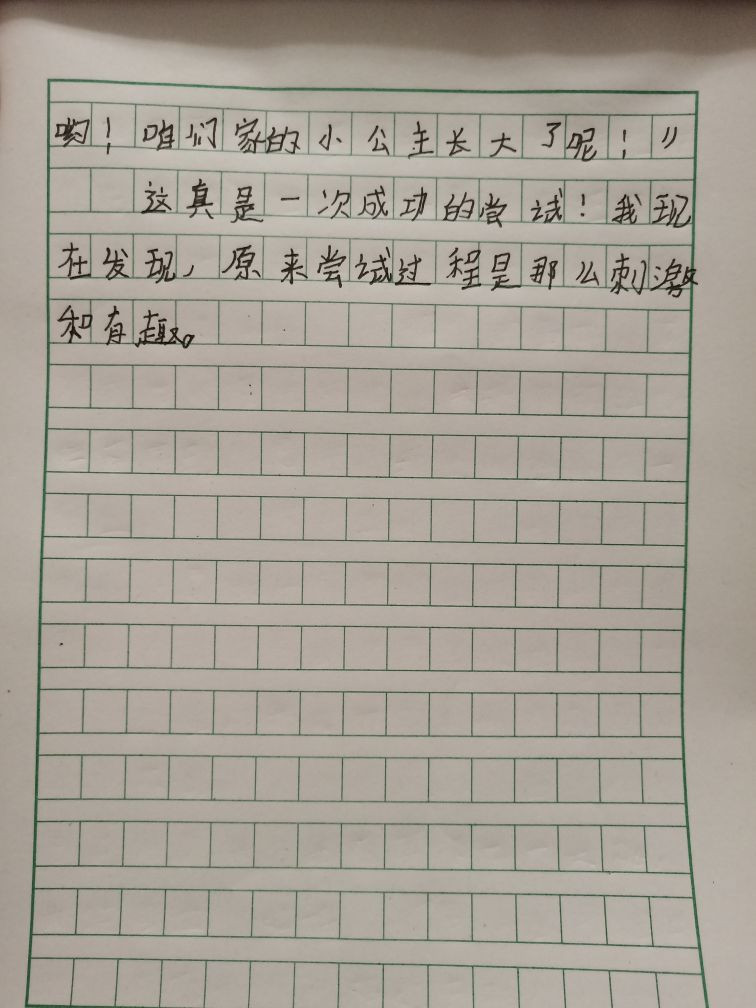 哟！咱们家的小公主长大了呢！”
这真是一次成功的尝试！我现
在发现，原来尝试过程是那么刺激
和有趣。